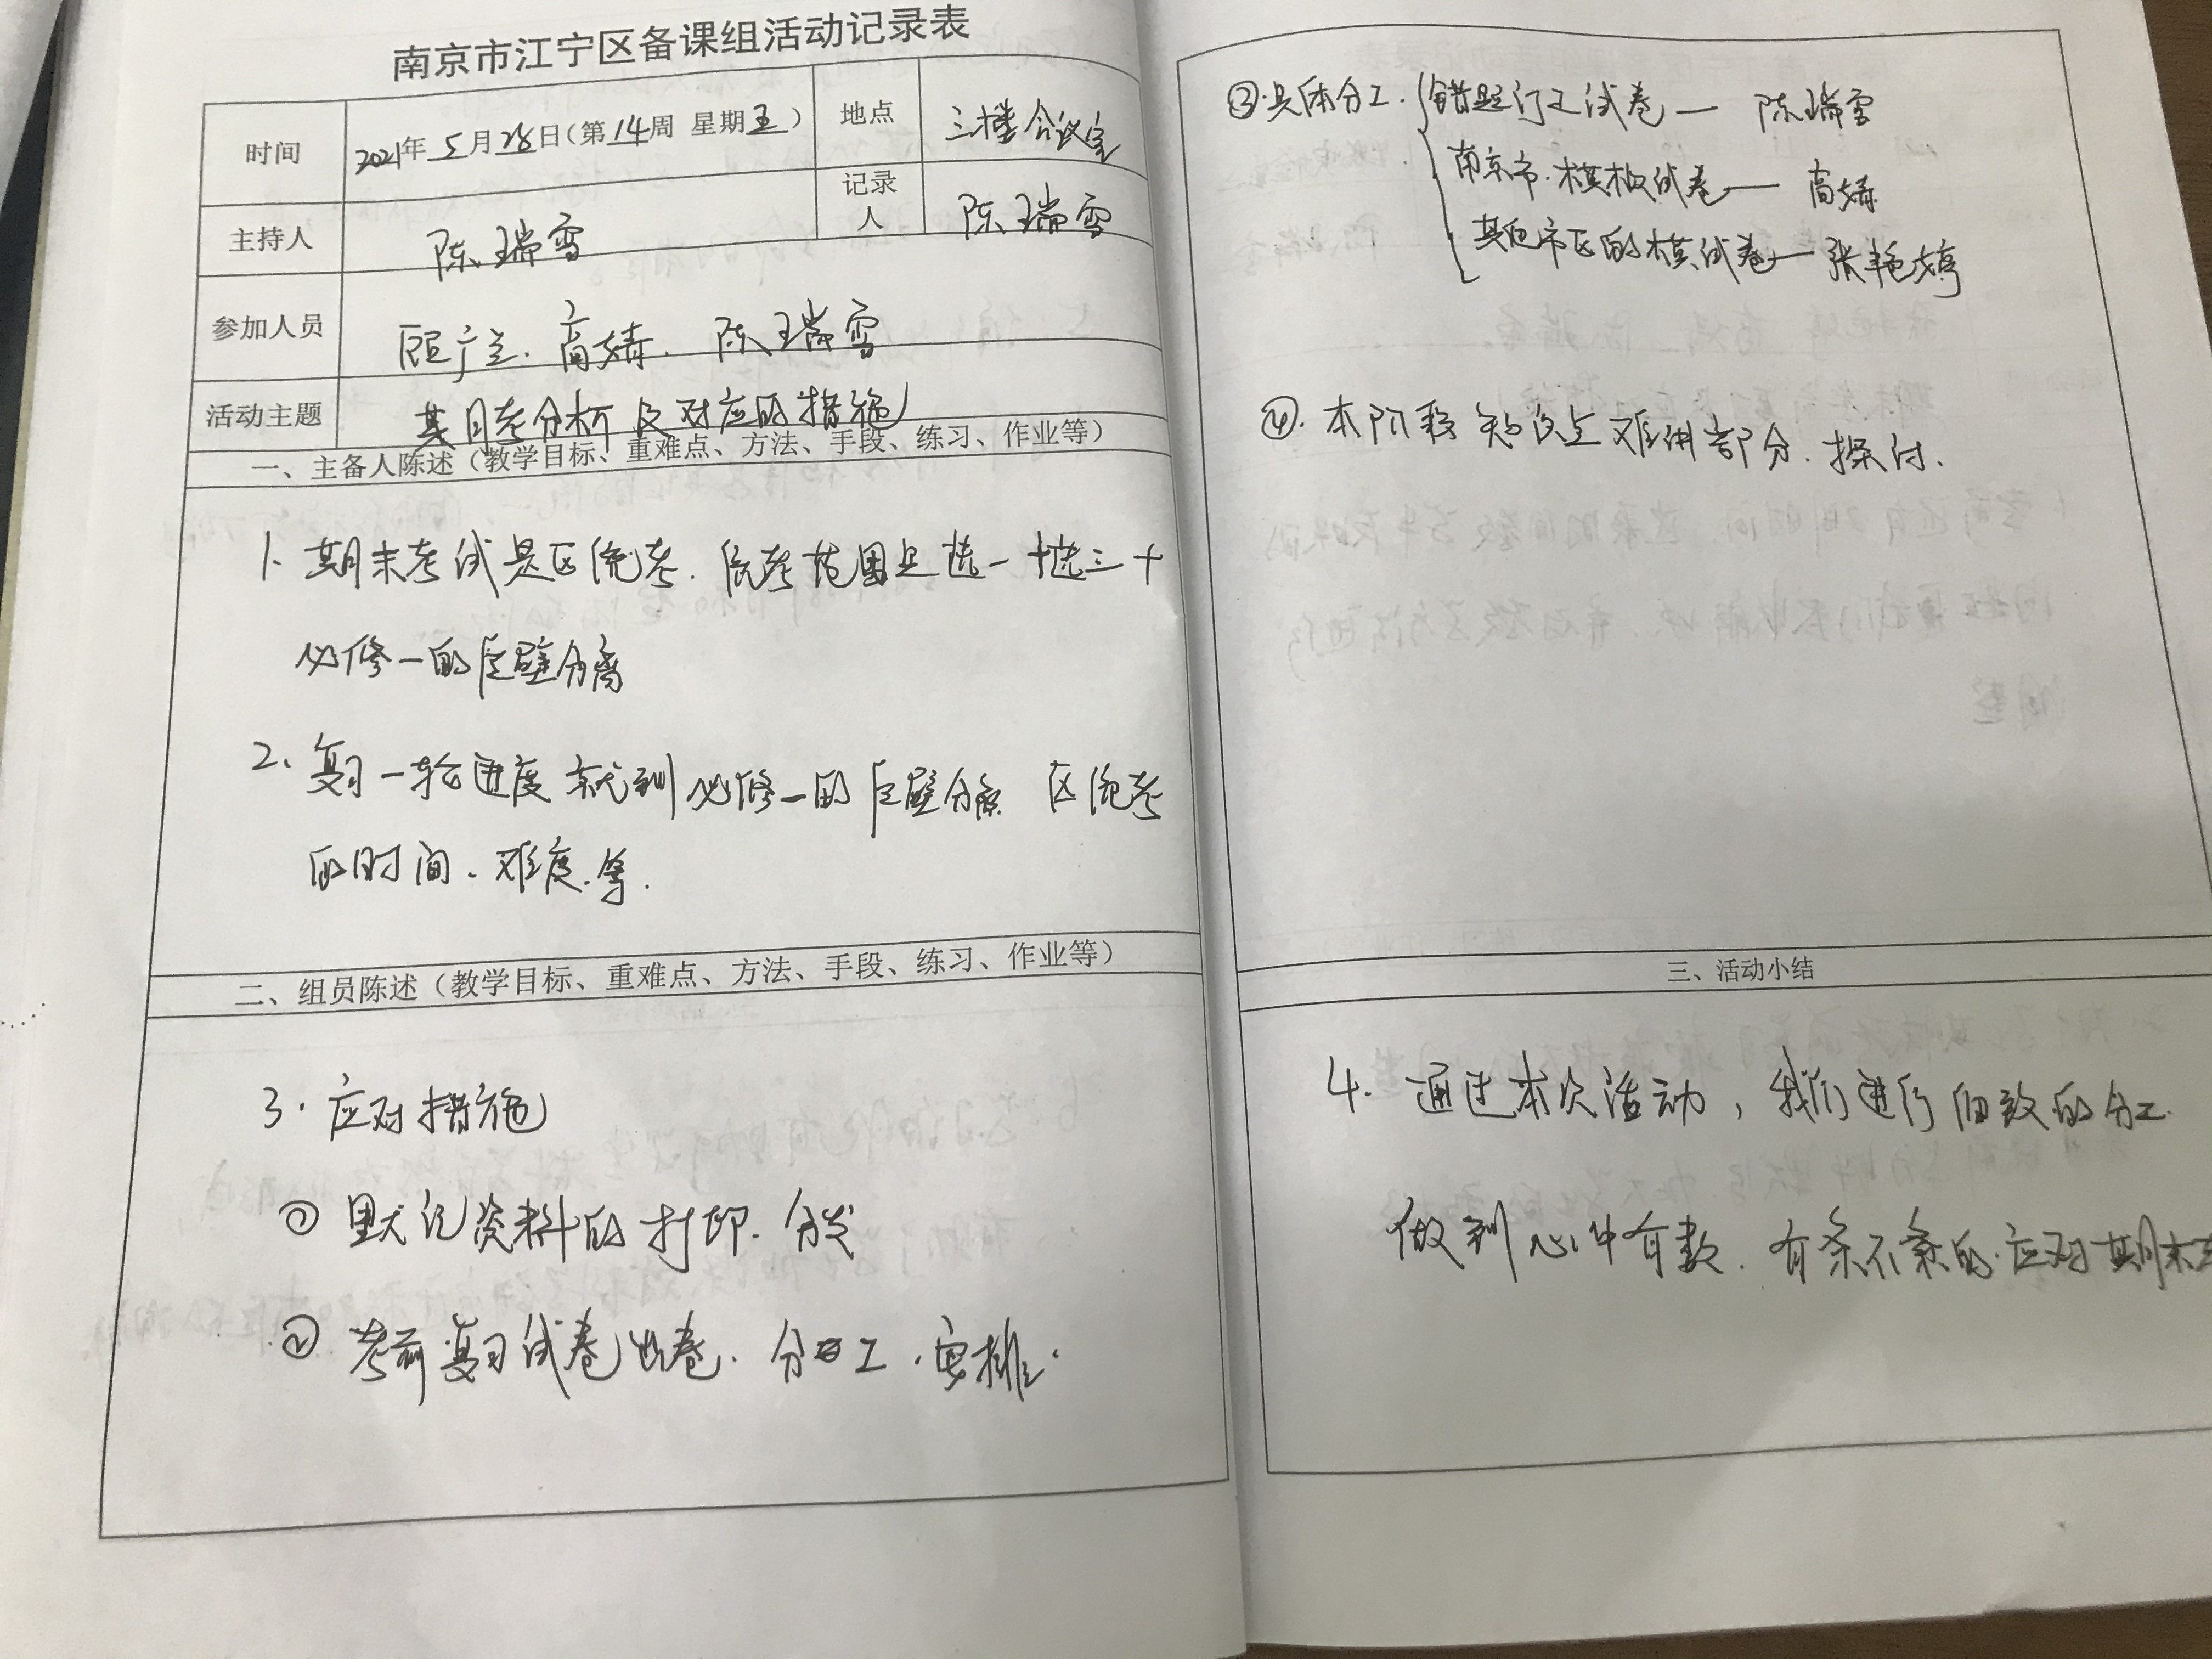 南京市江宁区备课组活动记录表
时间 2021年 5月 28日(第14周 星期五) 地点 三楼会议室
主持人 陈瑞雪 记录人 陈瑞雪
参加人员 顾广兰. 高婧. 陈瑞雪
活动主题 其月考分析及对应的措施
一、主备人陈述(教学目标、重难点、方法、手段、练习、作业等)
1. 期末考试是区统考. 统考范围是选一+选三+
必修一的质壁分离
2. 复习一轮进度就到必修一的质壁分离 区统考
的时间、难度.等.
二、组员陈述(教学目标、重难点、方法、手段、练习、作业等)
3. 应对措施
① 默记资料的打印. 分发
② 考前复习试卷出卷. 分工. 安排.
③.具体分工. 错题订正试卷— 陈瑞雪
南京市.模拟试卷— 高婧
其他市区的模试卷—张艳婷
④. 本阶段知识点难讲部分. 探讨.
三、活动小结
4. 通过本次活动,我们进行细致的分工.
做到心中有数. 有条不紊的.应对期末考